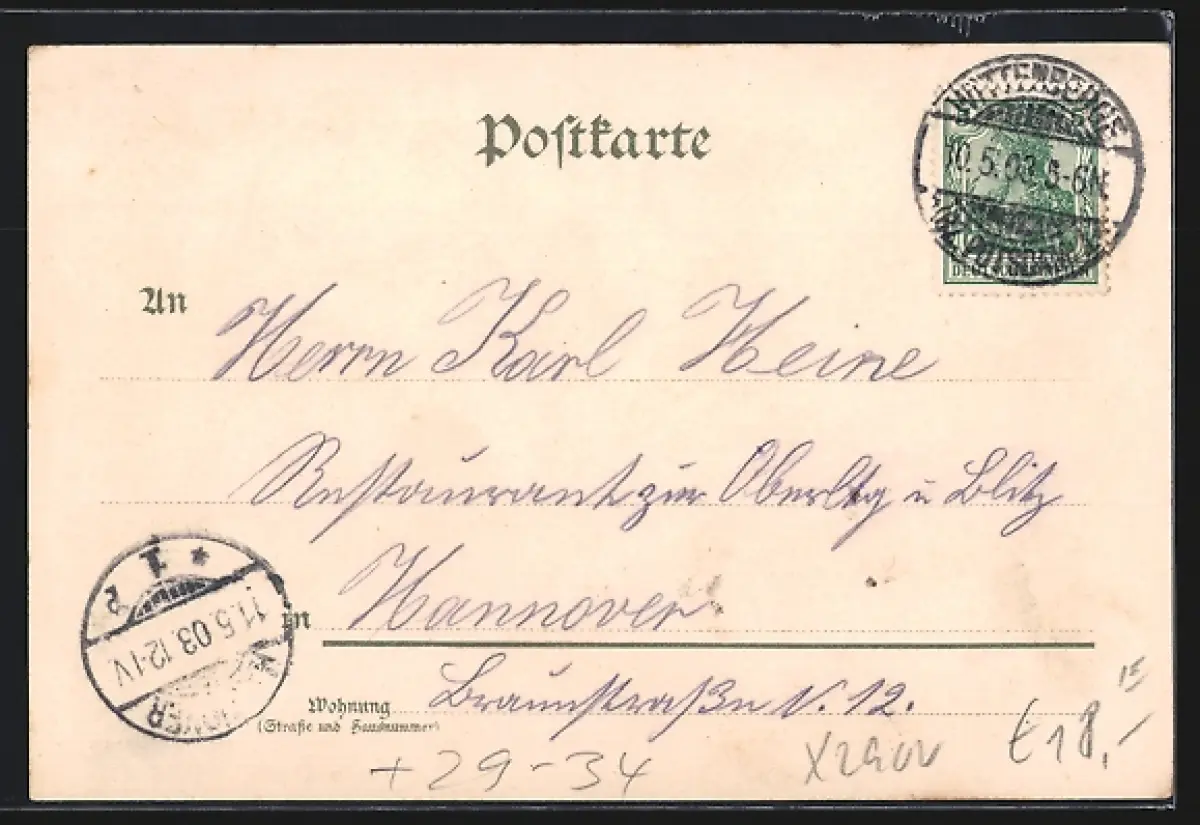 Postkarte
WITTENBERGE
10.5.03 5-6N.
(BZ. POTSDAM)
DEUTSCHES REICH
An
Herrn Karl Heine
Restaurant zur Oberltg u Blitz
in
Hannover
* 1
11.5.03.12-1V
HANNOVER
Wohnung
(Straße und Hausnummer)
Braunstraße N. 12.
+29-34
€18,-